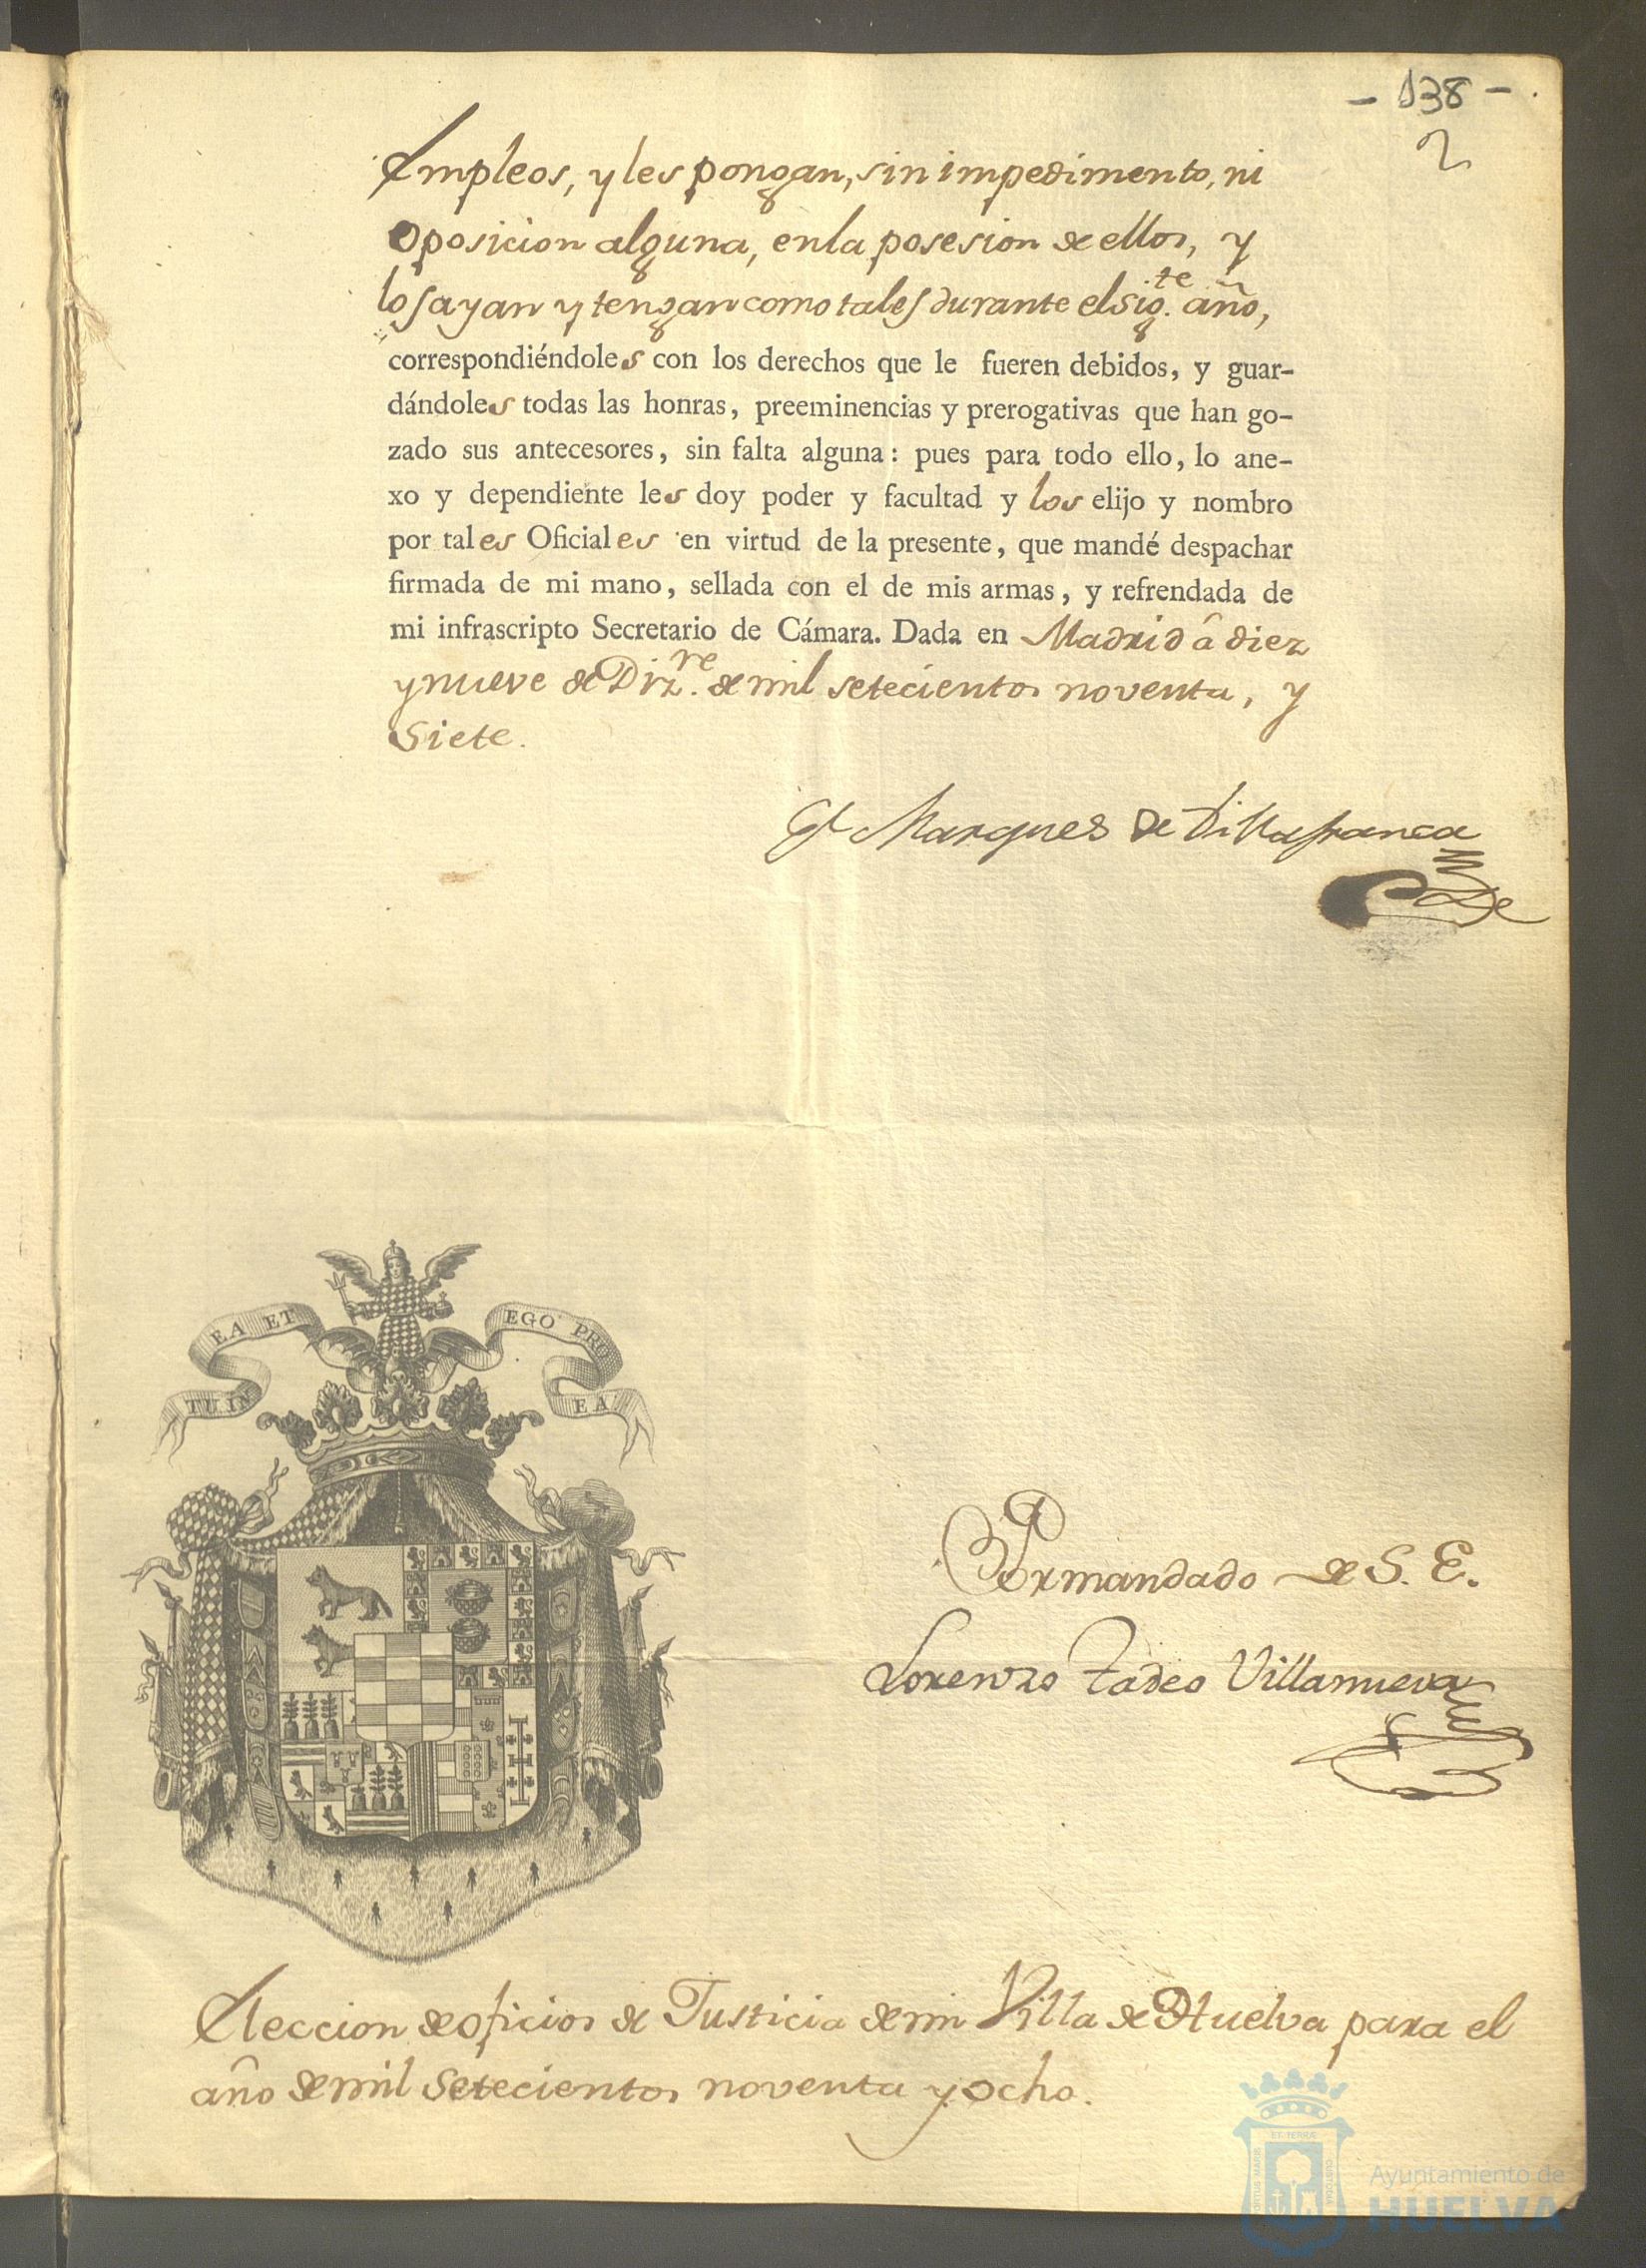 - 138 -
2
Empleos, y les pongan, sin impedimento, ni
oposicion alguna, en la posesion de ellos, y
los ayan y tengan como tales durante el sig.te año,
correspondiéndoles con los derechos que le fueren debidos, y guar-
dándoles todas las honras, preeminencias y prerogativas que han go-
zado sus antecesores, sin falta alguna: pues para todo ello, lo ane-
xo y dependiente les doy poder y facultad y los elijo y nombro
por tales Oficiales en virtud de la presente, que mandé despachar
firmada de mi mano, sellada con el de mis armas, y refrendada de
mi infrascripto Secretario de Cámara. Dada en Madrid â diez
y nueve de Diz.re de mil setecientos noventa, y
Siete.
El Marques de Villafranca
EA ET
EGO PRO
TU IN
EA
Por mandado de S. E.
Lorenzo Tadeo Villanueva
Eleccion de oficios de Justicia de mi Villa de Huelva para el
año de mil setecientos noventa y ocho.
Ayuntamiento de
HUELVA